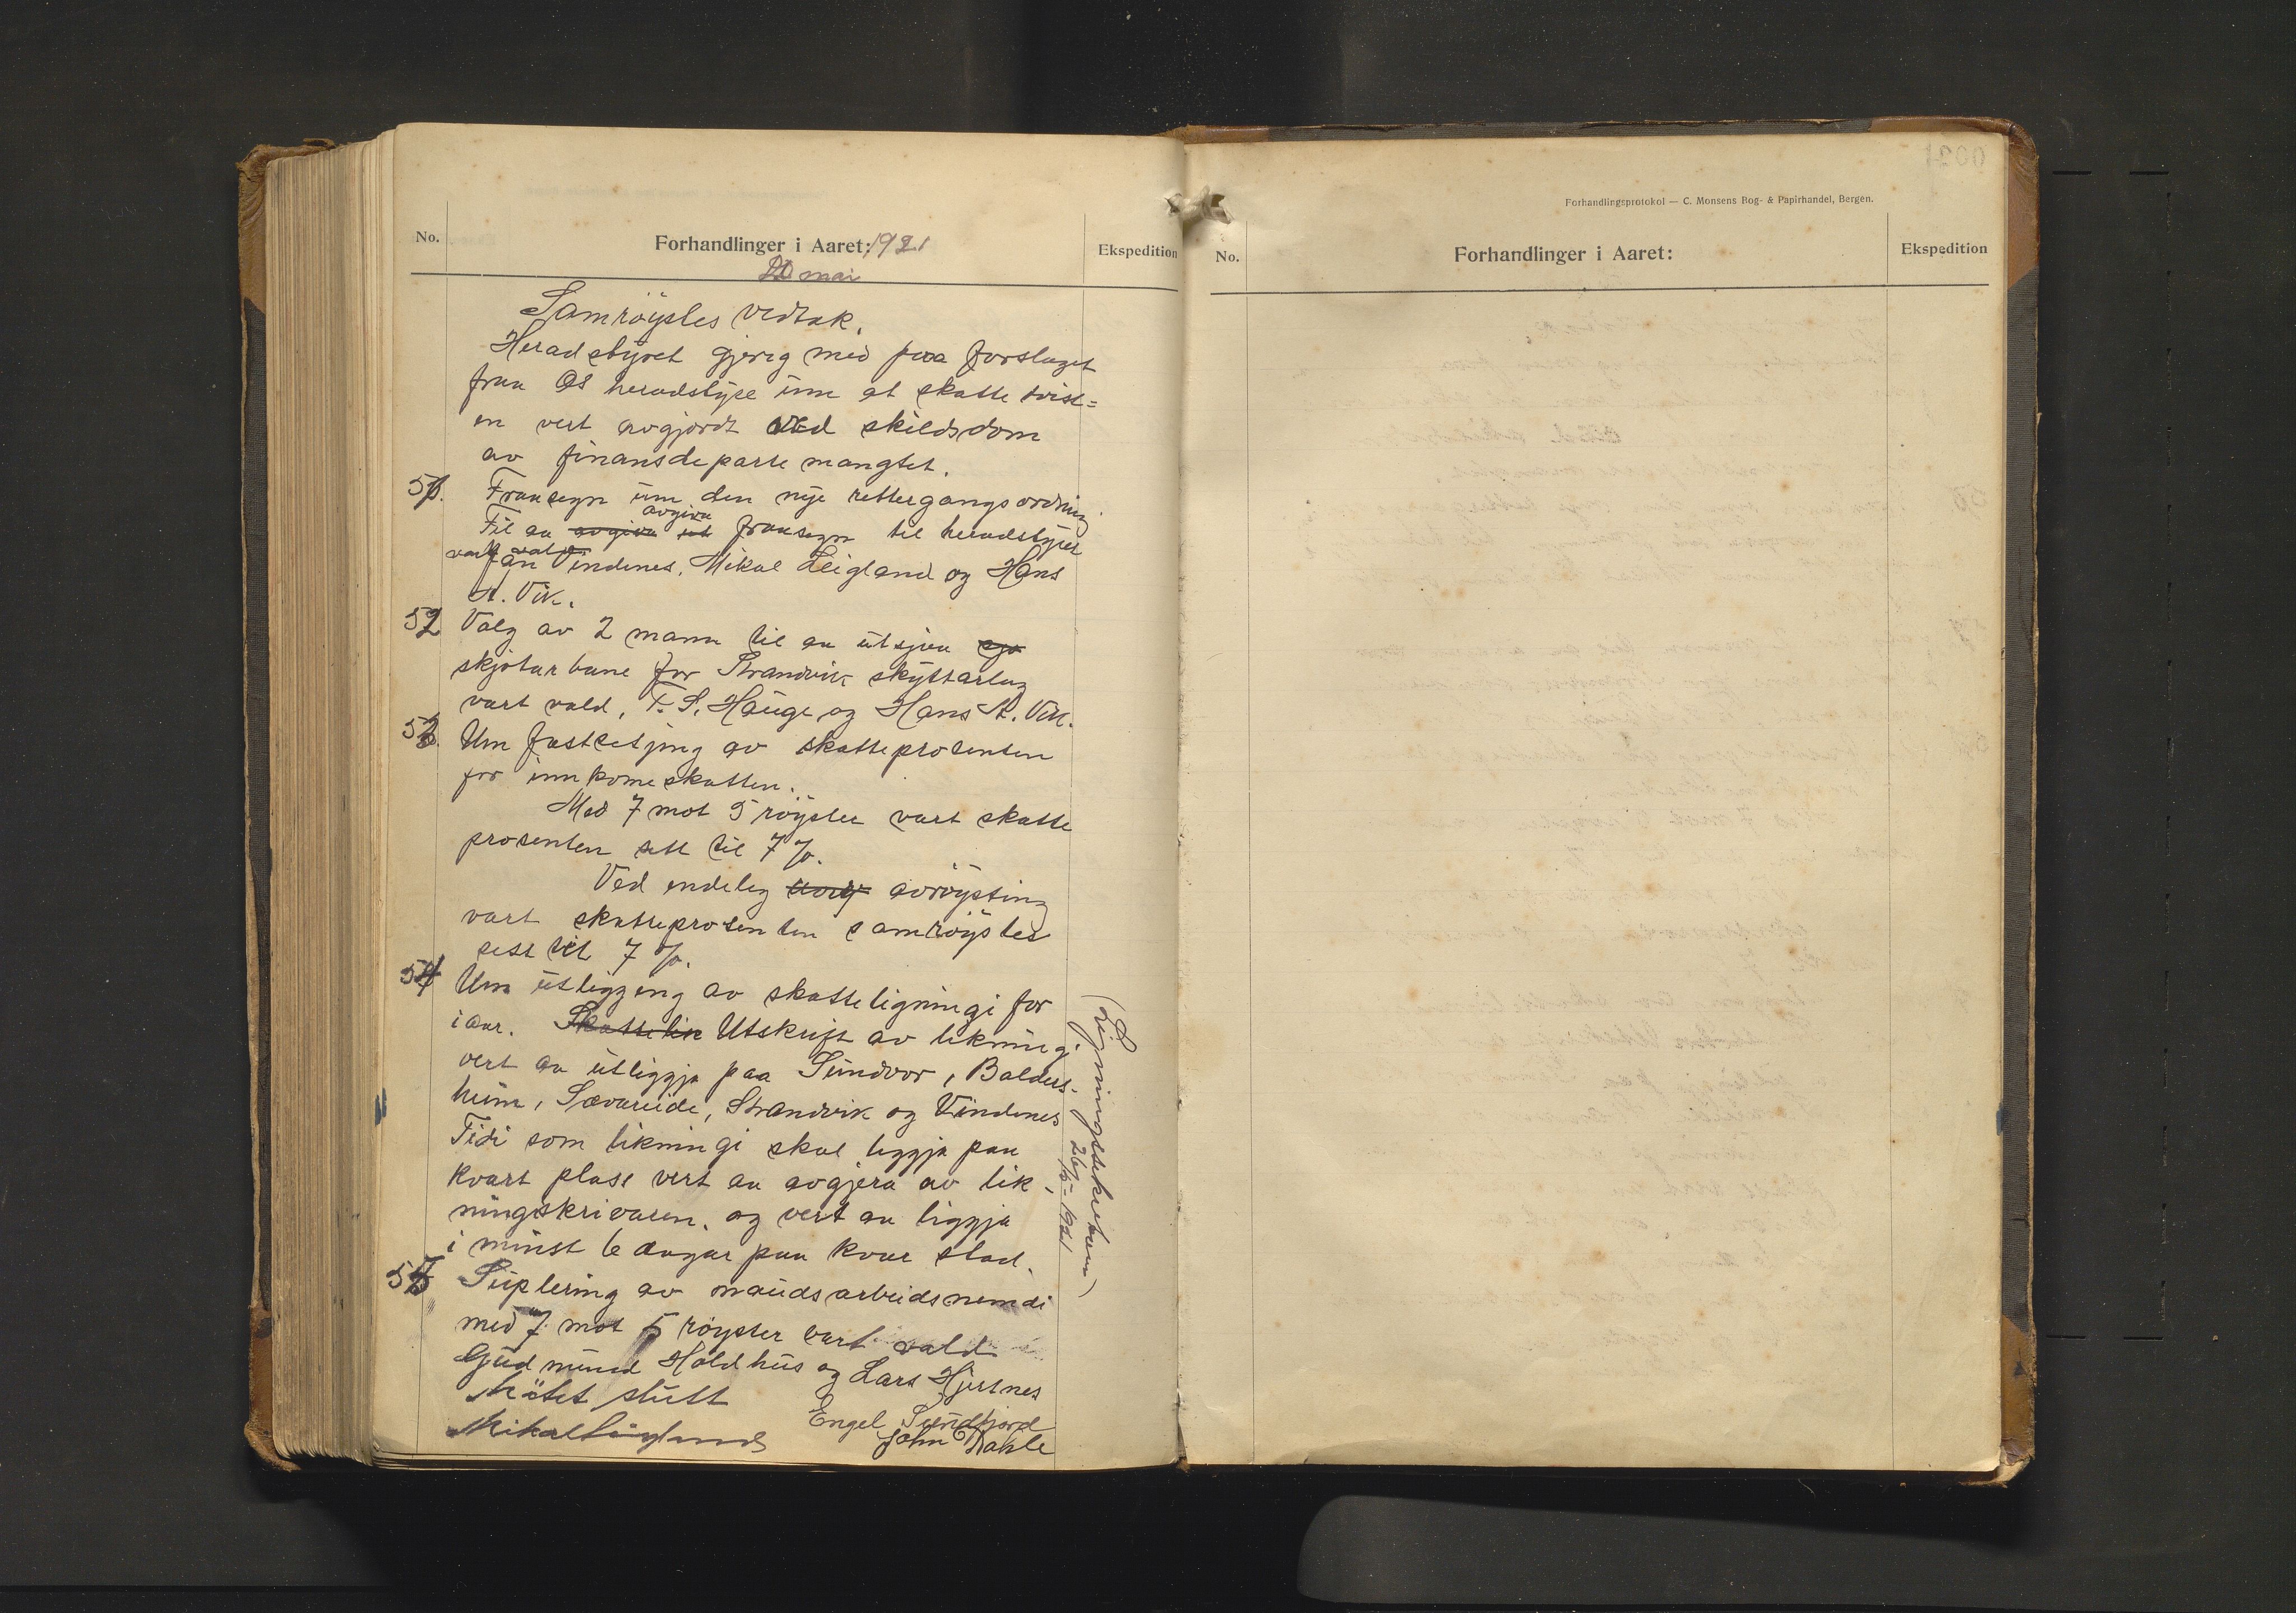 No.
Forhandlinger i Aaret: 1921
Ekspedition
20 mai
Samröystes vedtak.
Heradstyret gjereg med paa forslaget
fraa Os heradstyre um at skatte tvist=
en vert avgjordt ved skildsdom
av finansdepartemangtet.
51. Fraasegn um den nye rettergangsordning
avgiva
Til aa avgiva ut fraasegn til heradstyret
vart vald
Jan Vindenes, Mikal Leigland og Hans
A. Vik.
52 Valg av 2 mann til aa utsjaa sjo
skjotarbane for Strandvik skyttarlag
vart vald, T. S. Hauge og Hans A. Vik.
53. Um fastsetjing av skatteprosenten
for innkomeskatten.
Med 7 mot 5 röyster vart skatte
prosenten sett til 7 %.
Ved endeleg avröysting
vart skatteprosenten samröystes
sett til 7 %.
54 Um utligging av skatteligningi for
i aar. Skattelik Utskrift av likningi
vert aa utliggja paa Sundvor, Balders-
heim, Sævareide, Strandvik og Vindenes
Tidi som likningi skal liggja paa
kvart plass vert aa avgjera av lik-
ningskrivaren, og vert aa liggja
i minst 6 dagar paa kvar stad.
55 Suplering av naudsarbeidsnemdi
med 7 mot 5 röyster vart vald
Gudmund Holdhus og Lars Hjertnes
Mötet slutt
Engel Sundfjord
Mikal Leigland
John Dahle
(Ligningssekretæren)
26/5-1921
Forhandlingsprotokol — C. Monsens Bog- & Papirhandel, Bergen.
No.
Forhandlinger i Aaret:
Ekspedition